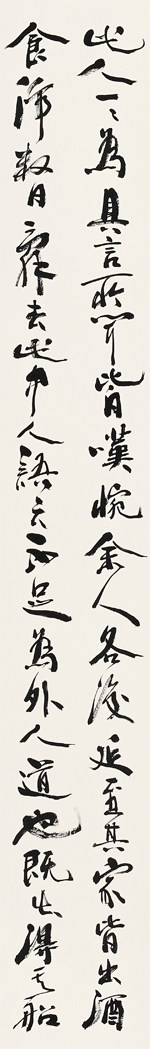 此人一一為具言所聞皆嘆惋余人各復延至其家皆出酒
食停数日辞去此中人語云不足為外人道也既出得其船